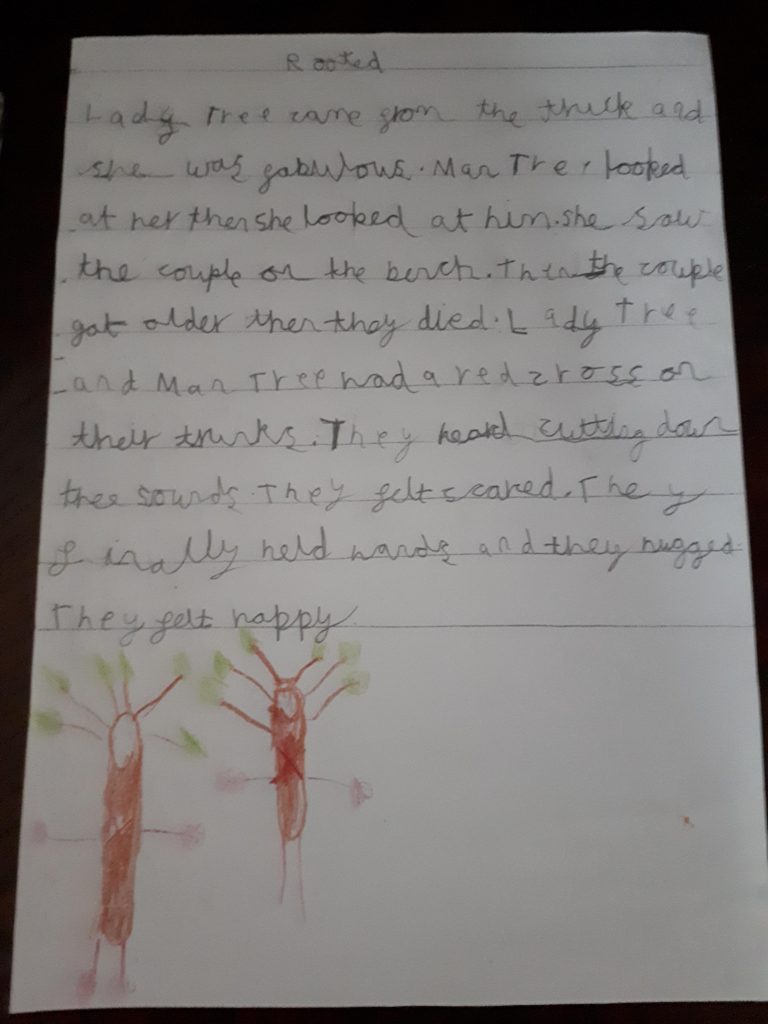 Rooted
Lady Tree came from the thick and
she was fabulous. Man Tree looked
at her then she looked at him. she saw
the couple on the bench. Then the couple
got older then they died. Lady Tree
and Man Tree had a red cross on
their trunks. They heard cutting down
thee sounds. They felt scared. They
finally held hands and they hugged.
They felt happy